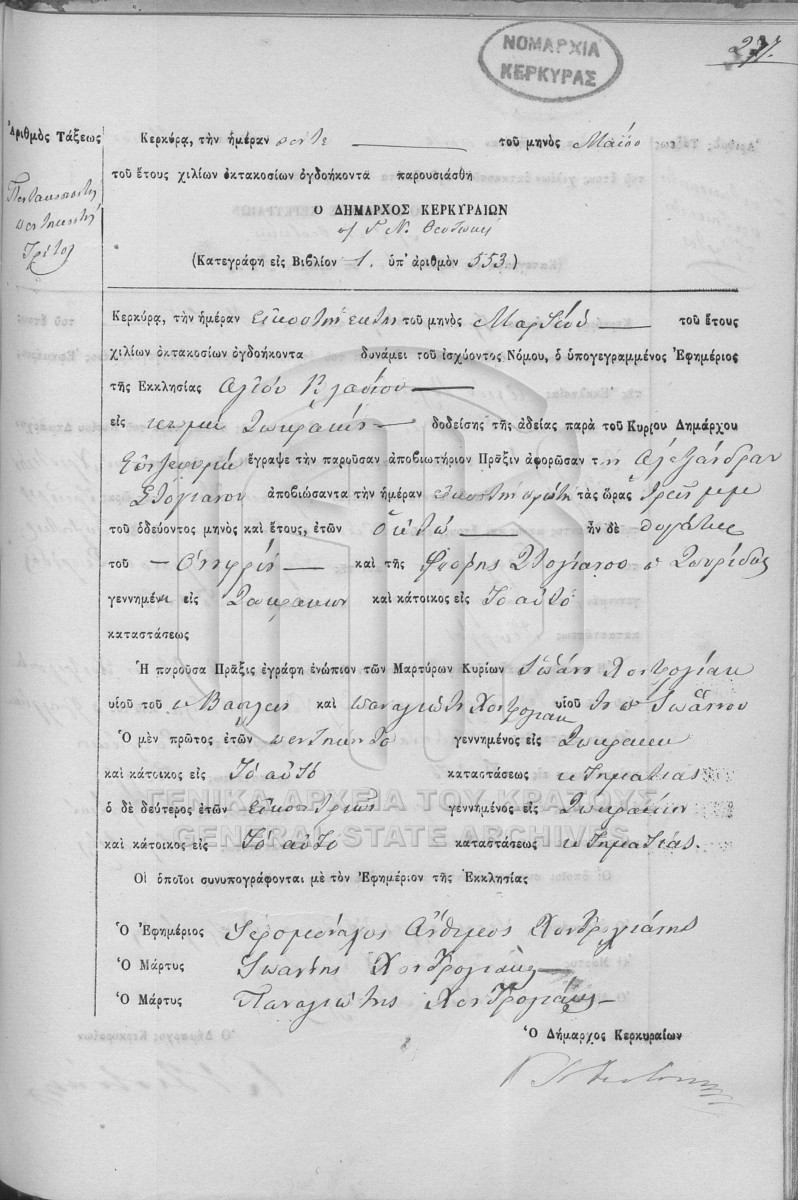 ΝΟΜΑΡΧΙΑ
ΚΕΡΚΥΡΑΣ
277.
Ἀριθμὸς Τάξεως
Πεντακοσιοστὴ
πεντηκοστὴ
Τρίτη
Κερκύρα, τὴν ἡμέραν πέντε τοῦ μηνὸς Μαΐου
τοῦ ἔτους χιλίων ὀκτακοσίων ὀγδοήκοντα παρουσιάσθη
Ὁ ΔΗΜΑΡΧΟΣ ΚΕΡΚΥΡΑΙΩΝ
Γ. Ν. Θεοτόκης
(Κατεγράφη εἰς Βιβλίον 1. ὑπ' ἀριθμὸν 553.)
Κερκύρα, τὴν ἡμέραν εἰκοστὴν ἕκτην τοῦ μηνὸς Μαρτίου τοῦ ἔτους
χιλίων ὀκτακοσίων ὀγδοήκοντα δυνάμει τοῦ ἰσχύοντος Νόμου, ὁ ὑπογεγραμμένος Ἐφημέριος
τῆς Ἐκκλησίας Ἁγίου Βλασίου
εἰς κώμην Σωκράκην δοδείσης τῆς ἀδείας παρὰ τοῦ Κυρίου Δημάρχου
ἔγραψε τὴν παροῦσαν ἀποβιωτήριον Πρᾶξιν ἀφορῶσαν τὴν Ἀλεξάνδραν
Στόγιαννου ἀποβιώσαντα τὴν ἡμέραν εἰκοστὴν πρώτη τὰς ὥρας τρεῖς μ.μ.
τοῦ ὁδεύοντος μηνὸς καὶ ἔτους, ἐτῶν ὀκτώ ἦν δὲ θυγάτηρ
τοῦ Ὀνυφρίου καὶ τῆς Στόγιαννου
γεννημένη εἰς Σωκράκην καὶ κάτοικος εἰς Τὸ αὐτό
καταστάσεως
Ἡ παροῦσα Πρᾶξις ἐγράφη ἐνώπιον τῶν Μαρτύρων Κυρίων Ἰωάννη Χοντρογιάννη
υἱοῦ τοῦ Βασίλη καὶ Παναγιώτη Χοντρογιάννη υἱοῦ τοῦ Ἰωάννου
Ὁ μὲν πρῶτος ἐτῶν πεντήκοντα γεννημένος εἰς Σωκράκην
καὶ κάτοικος εἰς Τὸ αὐτό καταστάσεως κτηματίας
ὁ δὲ δεύτερος ἐτῶν εἴκοσι τριῶν γεννημένος εἰς Σωκράκην
καὶ κάτοικος εἰς Τὸ αὐτό καταστάσεως κτηματίας.
Οἱ ὁποῖοι συνυπογράφονται μὲ τὸν Ἐφημέριον τῆς Ἐκκλησίας
Ὁ Ἐφημέριος Ἱερομόναχος Ἄνθιμος Χοντρογιάννης
Ὁ Μάρτυς Ἰωάννης Χοντρογιάννης
Ὁ Μάρτυς Παναγιώτης Χοντρογιάννης
Ὁ Δήμαρχος Κερκυραίων
ΓΕΝΙΚΑ ΑΡΧΕΙΑ ΤΟΥ ΚΡΑΤΟΥΣ
GENERAL STATE ARCHIVES